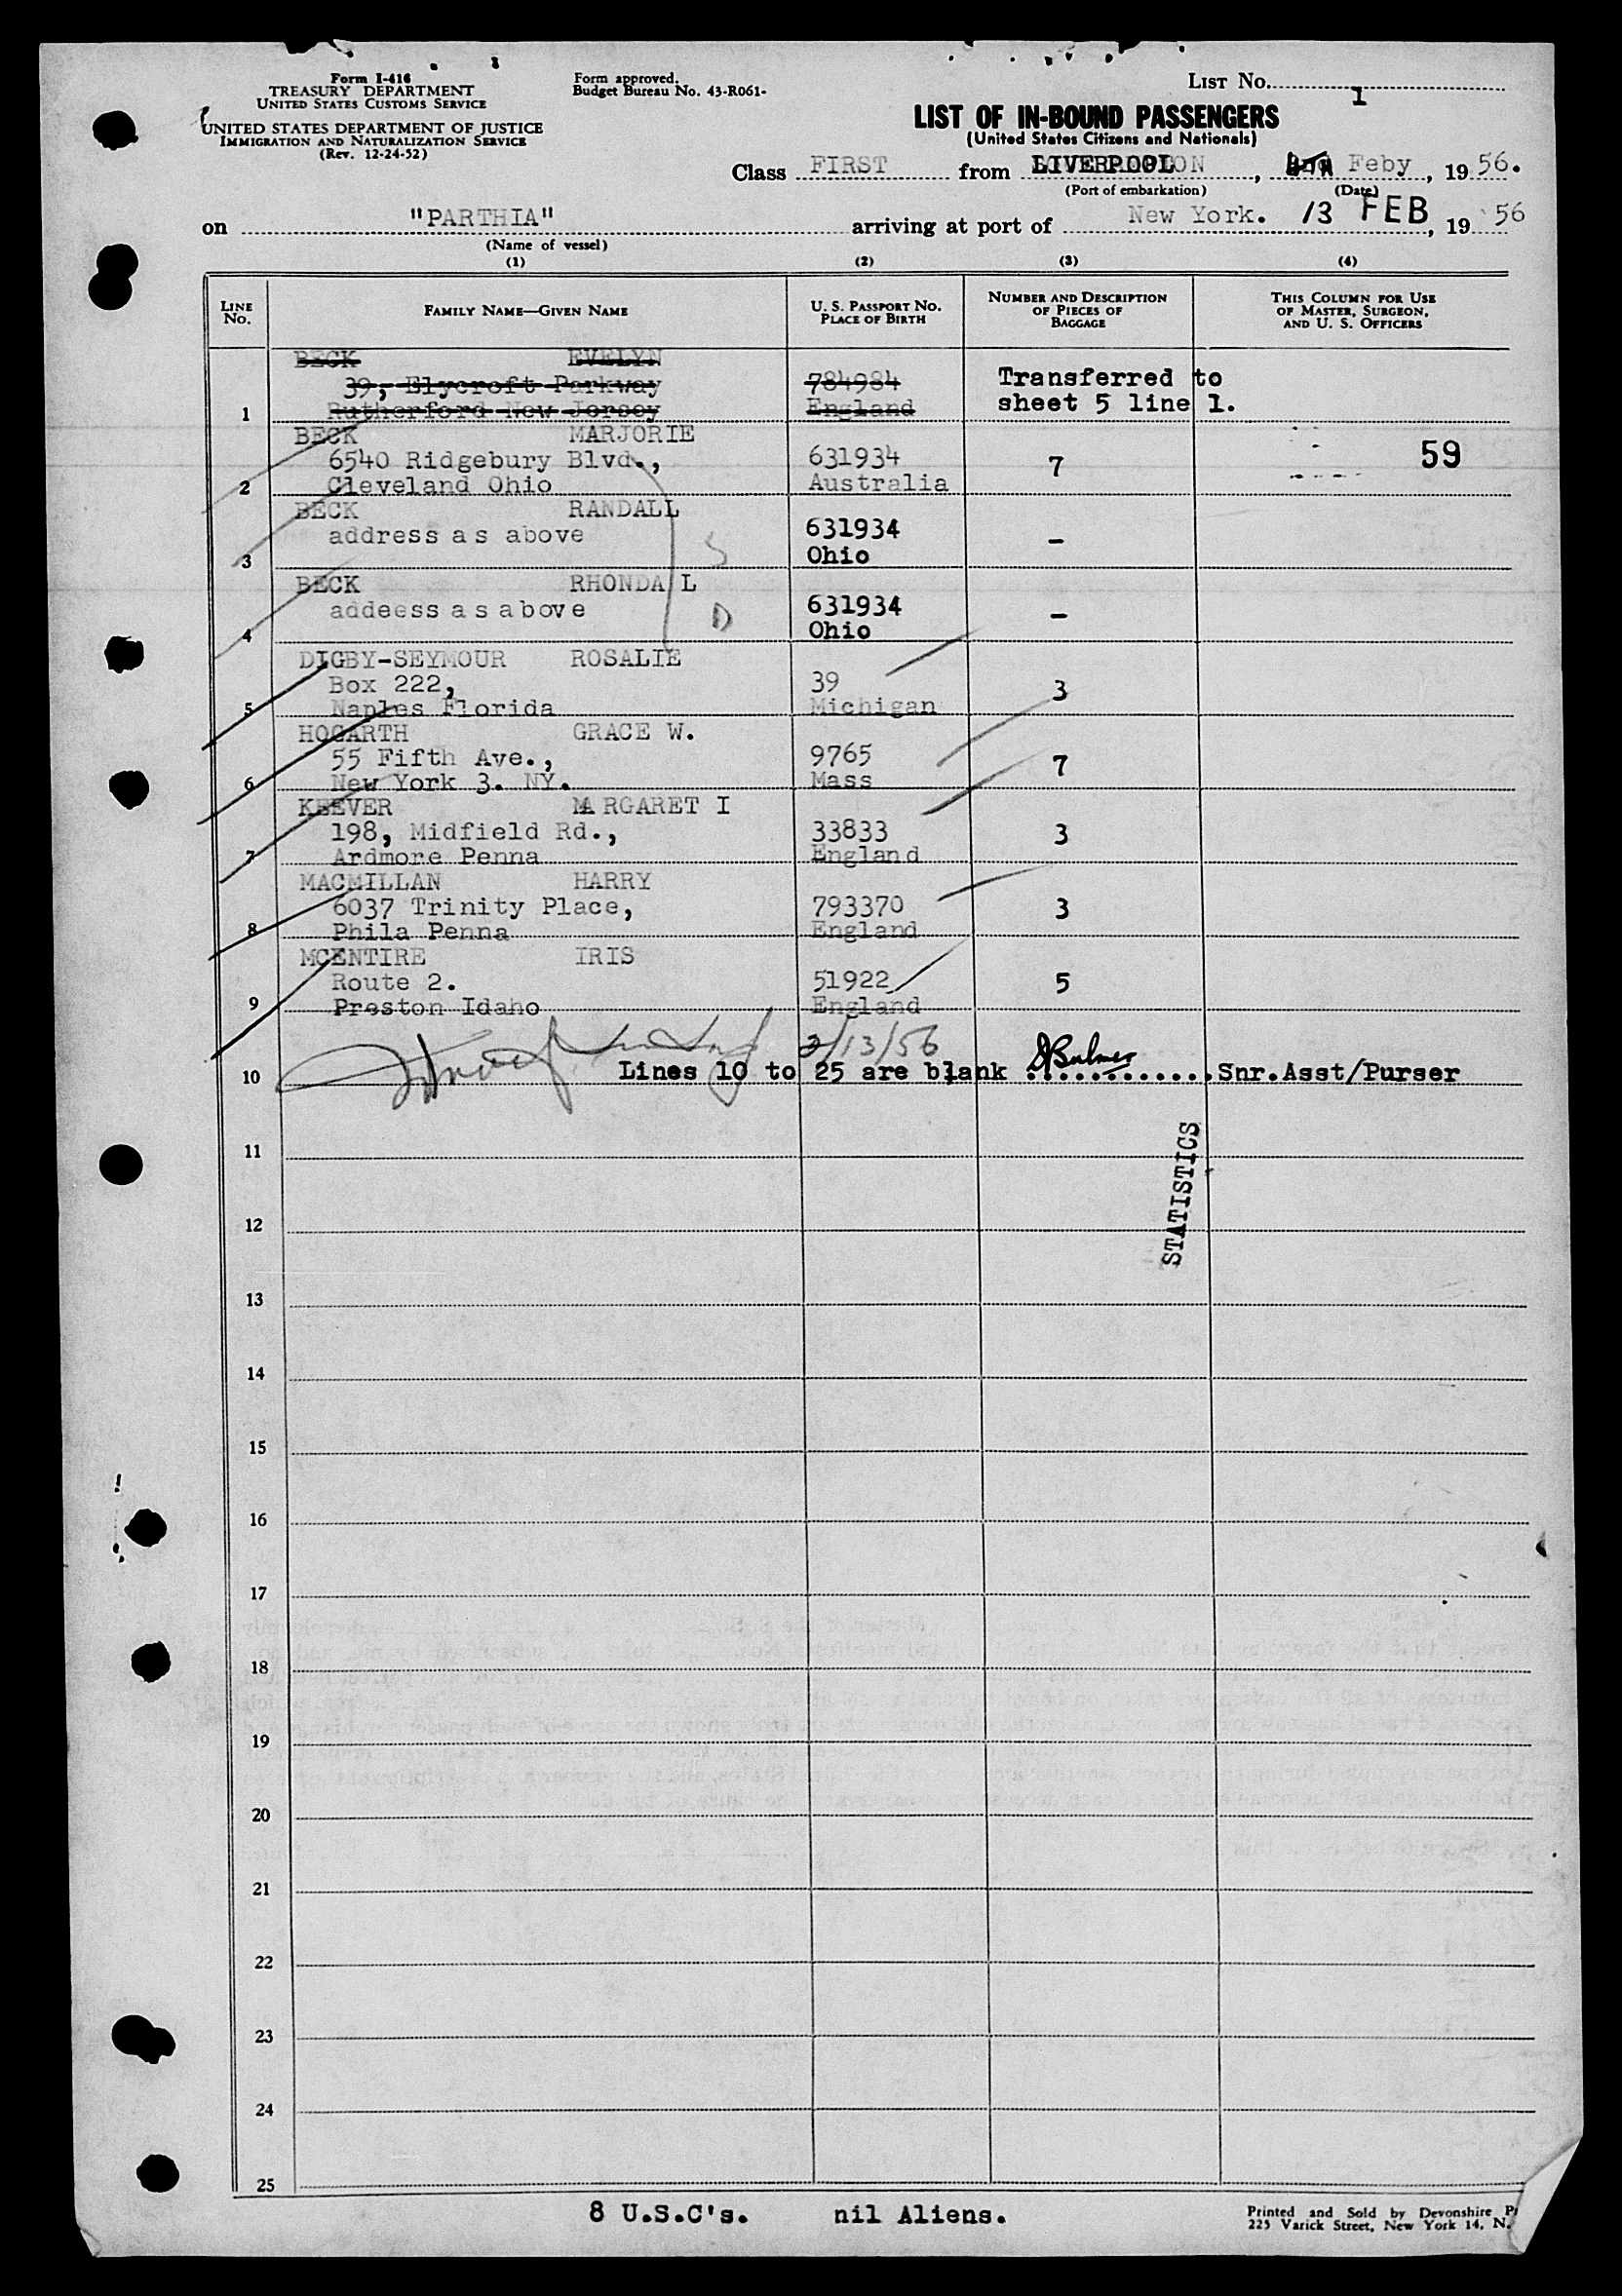 Form I-416
TREASURY DEPARTMENT
UNITED STATES CUSTOMS SERVICE
UNITED STATES DEPARTMENT OF JUSTICE
IMMIGRATION AND NATURALIZATION SERVICE
(Rev. 12-24-52)
Form approved.
Budget Bureau No. 43-R061-
LIST No. 1
LIST OF IN-BOUND PASSENGERS
(United States Citizens and Nationals)
Class FIRST from LIVERPOOL, Feby, 1956.
(Port of embarkation) (Date)
on "PARTHIA" arriving at port of New York. 13 FEB, 19 56
(Name of vessel)
(1) (2) (3) (4)
LINE NO. FAMILY NAME—GIVEN NAME U. S. PASSPORT NO. PLACE OF BIRTH NUMBER AND DESCRIPTION OF PIECES OF BAGGAGE THIS COLUMN FOR USE OF MASTER, SURGEON, AND U. S. OFFICERS
BECK EVELYN
39, Elycroft Parkway 784984 Transferred to
1 Rutherford New Jersey England sheet 5 line 1.
BECK MARJORIE
6540 Ridgebury Blvd., 631934 7 59
2 Cleveland Ohio Australia
BECK RANDALL
address as above 631934 –
3 Ohio S
BECK RHONDA L
addeess as above 631934 –
4 Ohio D
DIGBY-SEYMOUR ROSALIE
Box 222, 39 3
5 Naples Florida Michigan
HOGARTH GRACE W.
55 Fifth Ave., 9765 7
6 New York 3. NY. Mass
KEEVER MARGARET I
198, Midfield Rd., 33833 3
7 Ardmore Penna England
MACMILLAN HARRY
6037 Trinity Place, 793370 3
8 Phila Penna England
MCENTIRE IRIS
Route 2. 51922 5
9 Preston Idaho England
2/13/56
10 Lines 10 to 25 are blank ............Snr.Asst/Purser
11
STATISTICS
12
13
14
15
16
17
18
19
20
21
22
23
24
25
8 U.S.C's. nil Aliens.
Printed and Sold by Devonshire
225 Varick Street, New York 14, N.